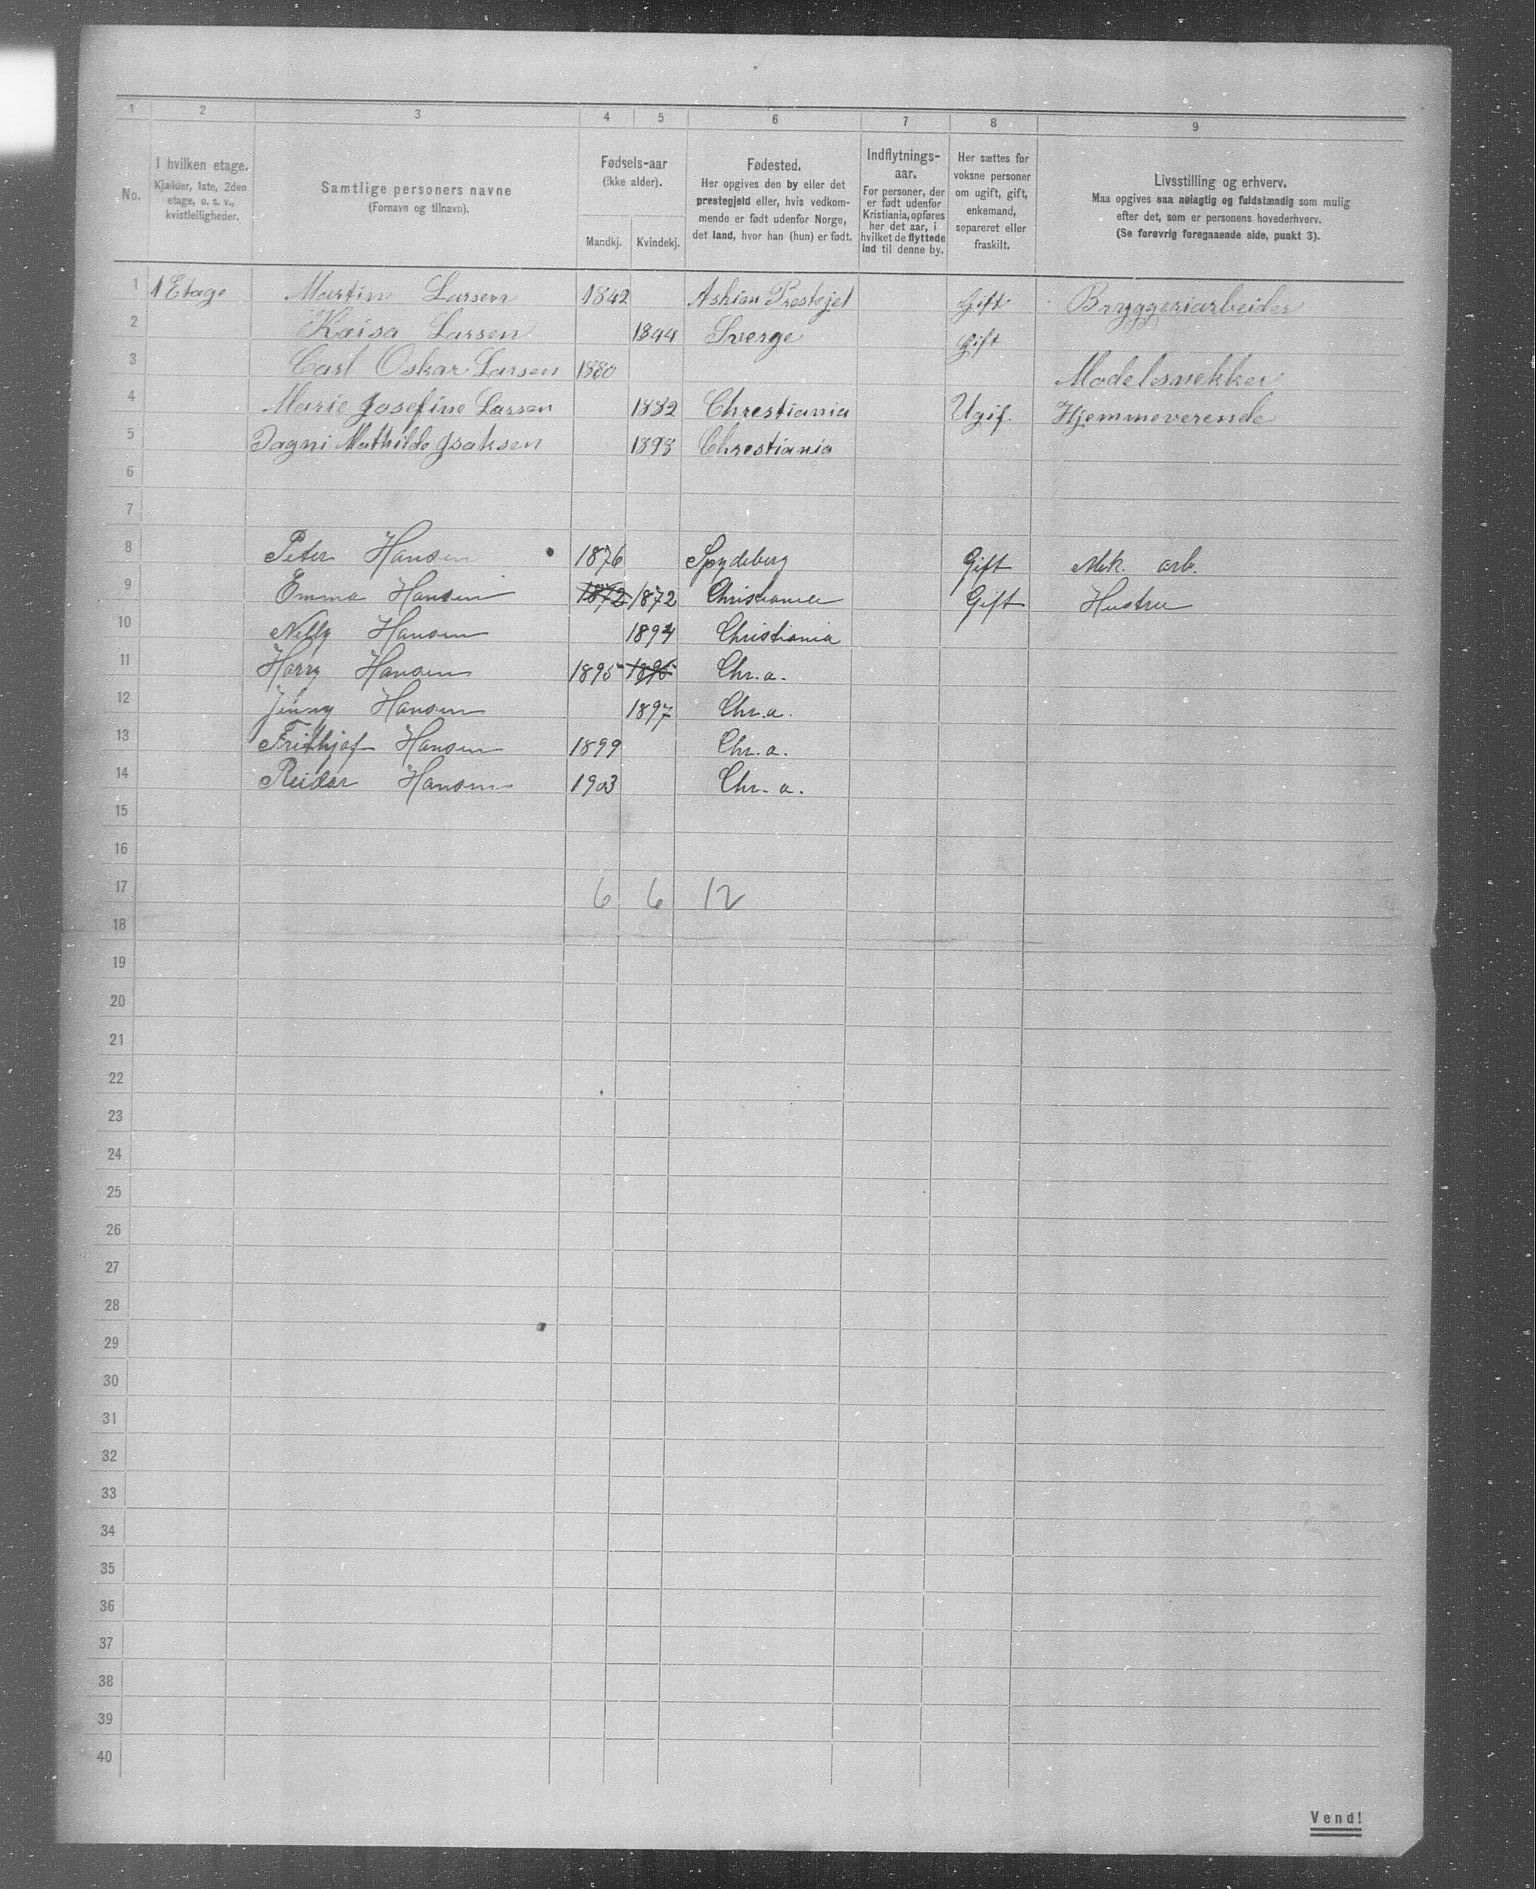 1 2 3 4 5 6 7 8 9
No.
I hvilken etage.
Kjælder, 1ste, 2den
etage, o. s. v.,
kvistleiligheder.
Samtlige personers navne
(Fornavn og tilnavn).
Fødsels-aar
(ikke alder).
Mandkj. Kvindekj.
Fødested.
Her opgives den by eller det
prestegjeld eller, hvis vedkom-
mende er født udenfor Norge,
det land, hvor han (hun) er født.
Indflytnings-
aar.
For personer, der
er født udenfor
Kristiania, opføres
her det aar, i
hvilket de flyttede
ind til denne by.
Her sættes for
voksne personer
om ugift, gift,
enkemand,
separeret eller
fraskilt.
Livsstilling og erhverv.
Maa opgives saa nøiagtig og fuldstændig som mulig
efter det, som er personens hovederhverv.
(Se forøvrig foregaaende side, punkt 3).
1 1 Etage Martin Larsen 1842 Askim Prestejel Gift Bryggeriarbeider
2 Kaisa Larsen 1844 Sverge Gift
3 Carl Oskar Larsen 1880 Modelsnekker
4 Marie Josefine Larsen 1882 Chrestiania Ugif. Hjemmeverende
5 Dagni Mathilde Isaksen 1898 Chrestiania
6
7
8 Peter Hansen 1876 Spydeberg Gift Mek. arb.
9 Emma Hansen 1872 1872 Christiania Gift Hustru
10 Nelly Hansen 1894 Christiania
11 Harry Hansen 1895 1895 Chr.a.
12 Jenny Hansen 1897 Chr.a.
13 Frithjof Hansen 1899 Chr.a.
14 Reidar Hansen 1903 Chr.a.
15
16
17 6 6 12
18
19
20
21
22
23
24
25
26
27
28
29
30
31
32
33
34
35
36
37
38
39
40
Vend!